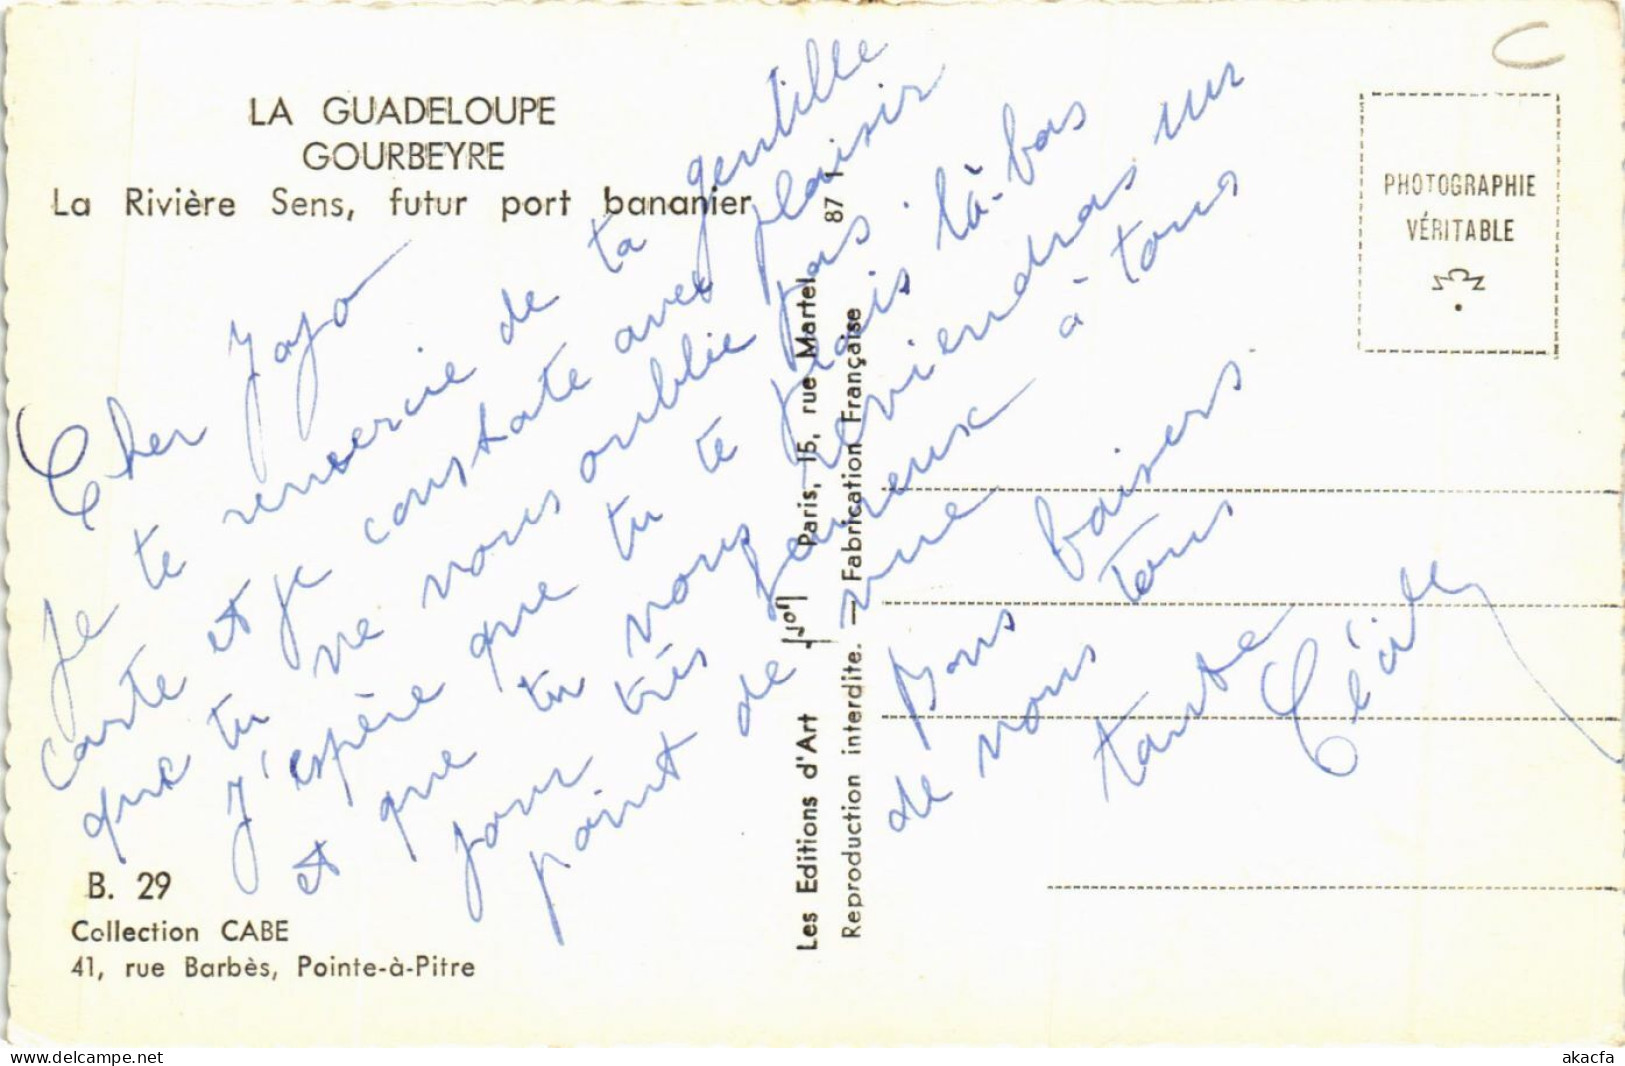 LA GUADELOUPE
GOURBEYRE
La Rivière Sens, futur port bananier
Cher Jojo
Je te remercie de ta gentille
carte et je constate avec plaisir
que tu ne nous oublie pas.
J'espère que tu te plais là-bas
et que tu nous reviendras sur
pour très joureux à tous
point de vue
Bons baisers
de nous tous
tante Cécile
B. 29
Collection CABE
41, rue Barbès, Pointe-à-Pitre
Les Editions d'Art Yvon Paris, 15, rue Martel 87 1
Reproduction interdite. — Fabrication Française
PHOTOGRAPHIE
VÉRITABLE
www.delcampe.net
akacfa